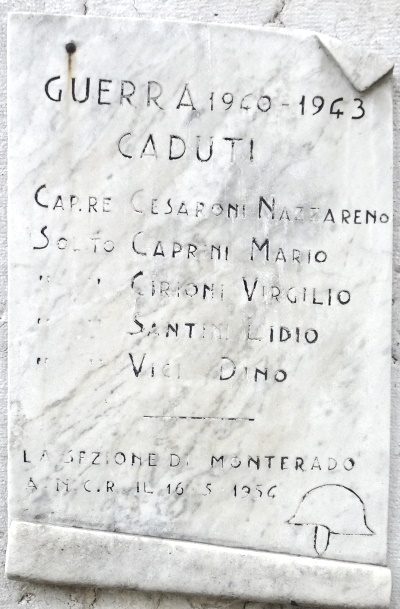 GUERRA 1940-1943
CADUTI
CAP.RE CESARONI NAZZARENO
SOLTO CAPRINI MARIO
" " CIRIONI VIRGILIO
" " SANTINI LIDIO
" " VICI DINO
LA SEZIONE DI MONTERADO
A.N.C.R. IL 16 5 1956